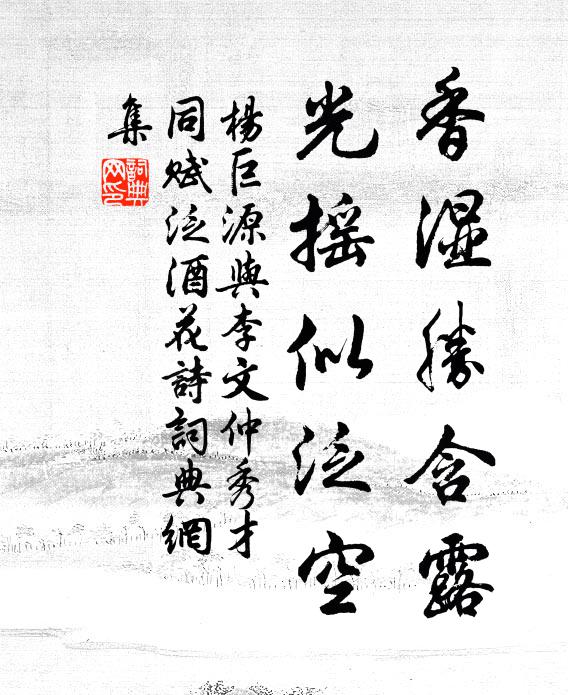 香湿勝含露
光摇似泛空
楊巨源與李文仲秀才
同赋泛酒花詩詞典網
集
詞典
网印